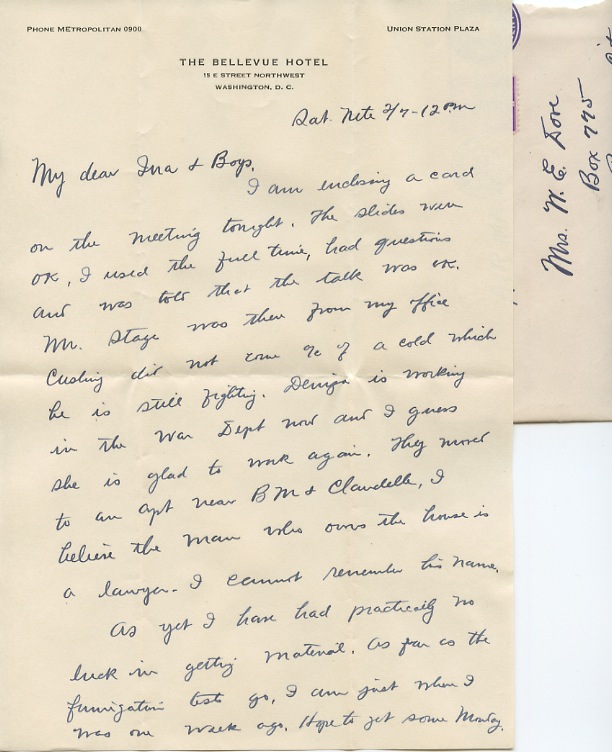 PHONE METROPOLITAN 0900
UNION STATION PLAZA
THE BELLEVUE HOTEL
15 E STREET NORTHWEST
WASHINGTON, D. C.
Sat. Nite 2/7-12 pm
My dear Ina & Boys,
I am enclosing a card
on the meeting tonight. The slides were
OK, I used the full time, had questions
and was told that the talk was OK.
Mr. Stage was there from my office
Cushing did not come a/c of a cold which
he is still fighting. Denzpa is working
in the War Dept now and I guess
she is glad to work again. They moved
to an apt near BM & Claudelle, I
believe the man who owns the house is
a lawyer - I cannot remember his name.
As yet I have had practically no
luck in getting material. As far as the
fumigation tests go, I am just where I
was one week ago. Hope to get some Monday.
Mrs. W. E. Dove
Box 775